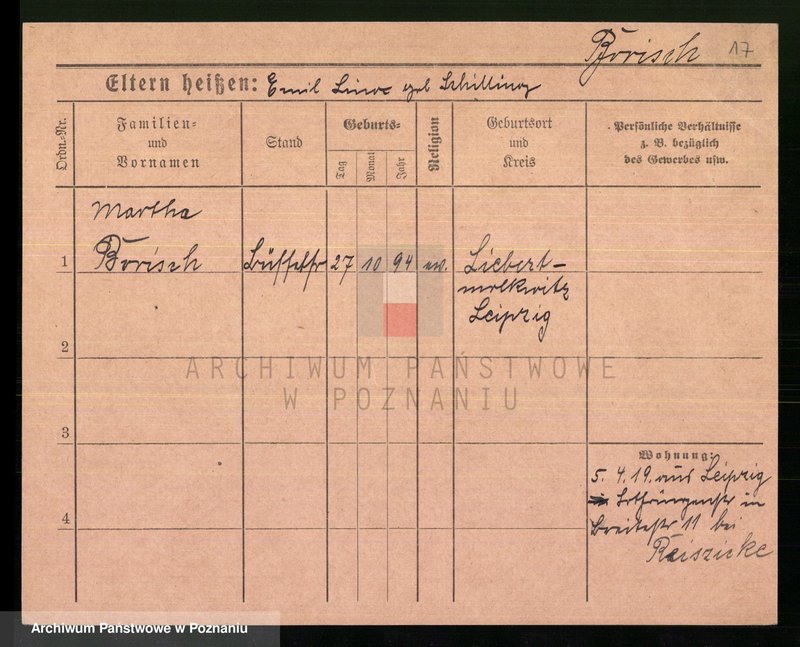 Borisch 17
Eltern heißen: Emil geb Schilling
Ordn.-Nr.
Familien-
und
Vornamen
Stand
Geburts-
Tag
Monat
Jahr
Religion
Geburtsort
und
Kreis
Persönliche Verhältnisse
z. B. bezüglich
des Gewerbes usw.
Martha
1 Borisch Büffetfr 27 10 94 ev. Liebert-
wolkwitz
Leipzig
2
ARCHIWUM PAŃSTWOWE
W POZNANIU
3
Wohnung:
5. 4. 19. aus Leipzig
in
Breitestr 11 bei
4
Archiwum Państwowe w Poznaniu